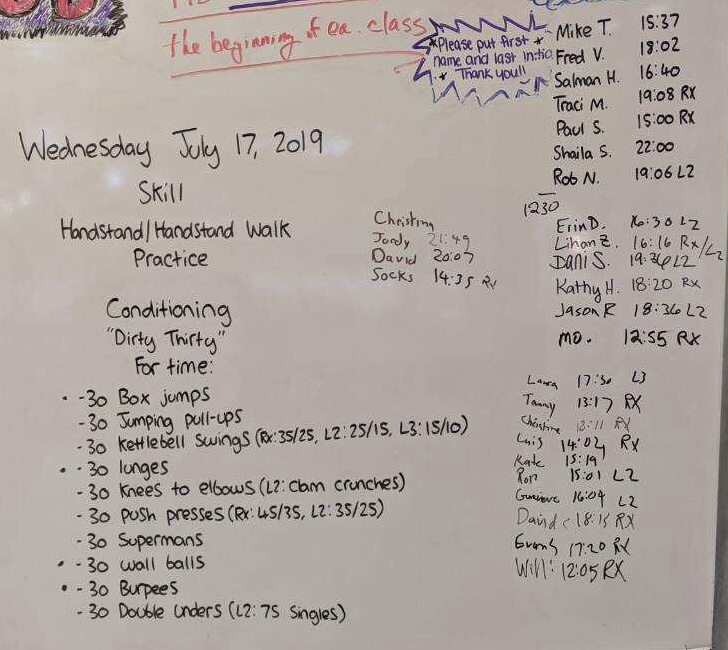 the beginning of ea. class
*Please put first *
name and last initia
* Thank you!!
Mike T. 15:37
Fred V. 18:02
Salman H. 16:40
Traci M. 19:08 RX
Paul S. 15:00 RX
Shaila S. 22:00
Rob N. 19:06 L2
Wednesday July 17, 2019
Skill
Handstand/Handstand Walk
Practice
Christina
Jordy 21:49
David 20:07
Socks 14:35 RX
1230
Erin D. 16:30 L2
16:16 Rx/L2
Dani S. 19:36 L2
Kathy H. 18:20 RX
Jason R 18:36 L2
MO. 12:55 RX
Conditioning
"Dirty Thirty"
For time:
• -30 Box jumps
-30 Jumping pull-ups
-30 Kettlebell swings (Rx:35/25, L2:25/15, L3:15/10)
• -30 lunges
-30 Knees to elbows (L2: clam crunches)
-30 push presses (Rx:45/35, L2:35/25)
-30 Supermans
• -30 wall balls
• -30 Burpees
-30 Double unders (L2: 75 singles)
Laura 17:30 L3
Tammy 13:17 RX
Christine RX
Luis 14:02 RX
Kate 15:19
15:01 L2
Genevieve 16:04 L2
David C 18:15 RX
17:20 RX
Will: 12:05 RX